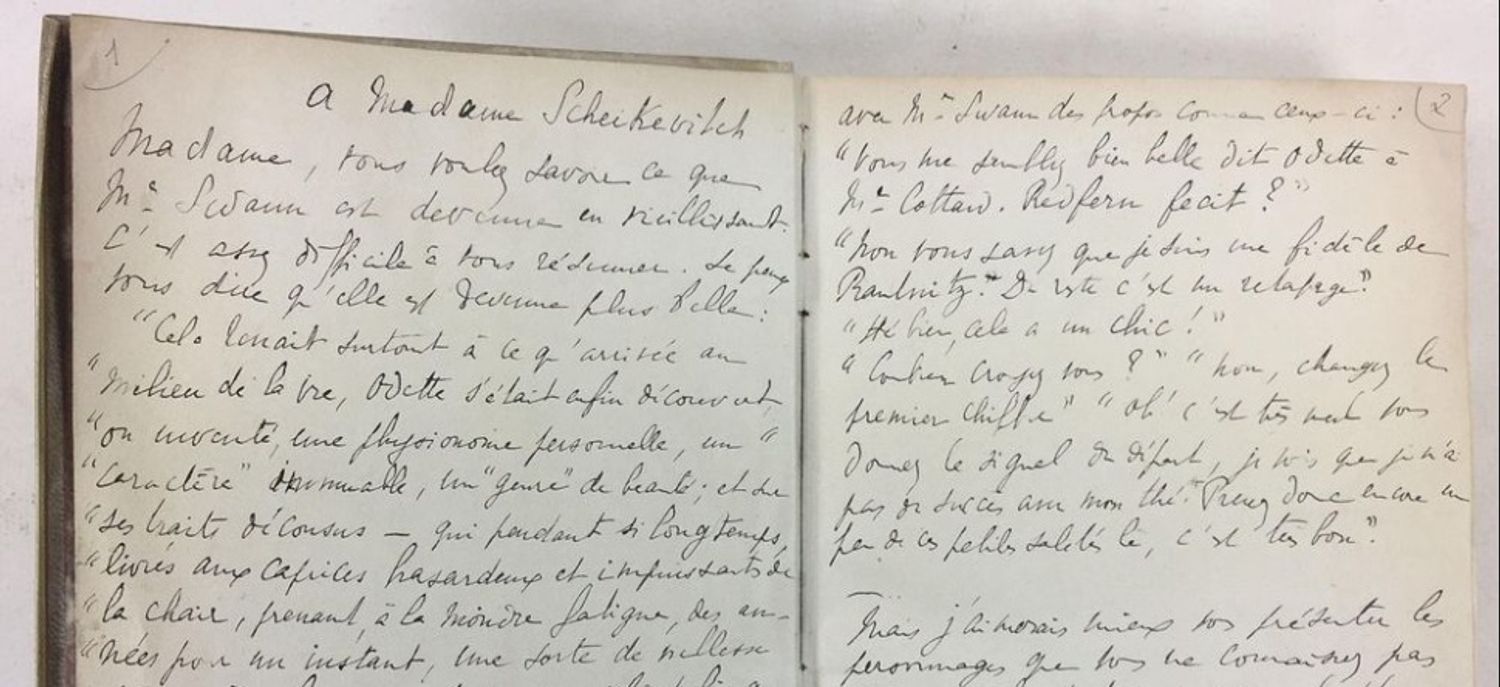 1
a Madame Scheikevitch
Madame, vous voulez savoir ce que
Me Swann est devenue en vieillissant.
C'est assez difficile à vous résumer. Je peux
vous dire qu'elle est devenue plus belle :
"Cela tenait surtout à ce qu'arrivée au
"milieu de la vie, Odette s'était enfin découvert,
"ou inventé, une physionomie personnelle, un "
"caractère" immuable, un "genre" de beauté ; et sur
"ses traits décousus — qui pendant si longtemps,
"livrés aux caprices hasardeux et impuissants de
"la chair, prenant à la moindre fatigue, des an-
"nées pour un instant, une sorte de vieillesse
2
avec Me Swann des propos comme ceux-ci :
"Vous me semblez bien belle dit Odette à
Me Cottard. Redfern fecit ?"
"Non vous savez que je suis une fidèle de
Raudnitz." Du reste c'est un retapage."
"Hé bien, cela a un chic !"
"Combien croyez vous ?" "Non, changez le
premier chiffre" "Oh ! c'est très mal vous
donnez le signal du départ, je vois que je n'ai
pas de succès avec mon thé." Prenez donc encore un
peu de ces petites saletés là, c'est très bon".
Mais j'aimerais mieux vous présenter les
personnages que vous ne connaissez pas